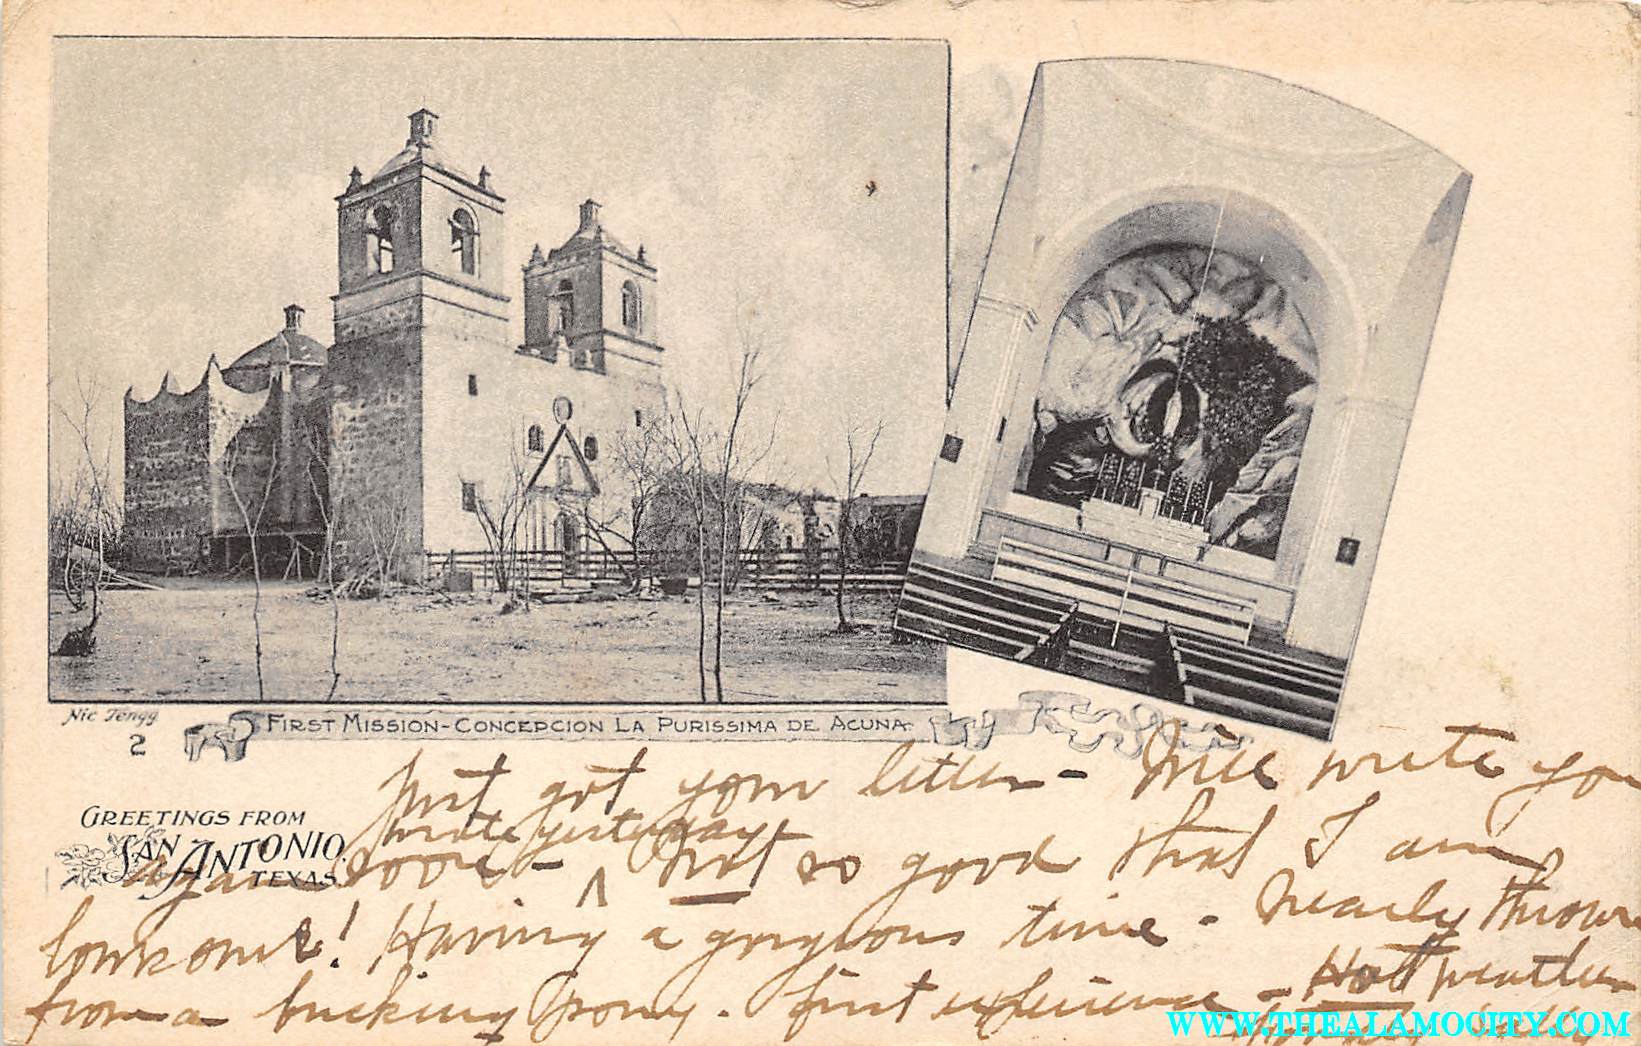 Nic Tengg
2
FIRST MISSION-CONCEPCION LA PURISSIMA DE ACUNA
GREETINGS FROM
SAN ANTONIO,
TEXAS.
Just got your letter - Will write you
wrote yesterday
again soon - ^ Not so good that I am
lonesome! Having a gorgeous time - Nearly thrown
from a bucking pony. first experience - Hot weather
WWW.THEALAMOCITY.COM